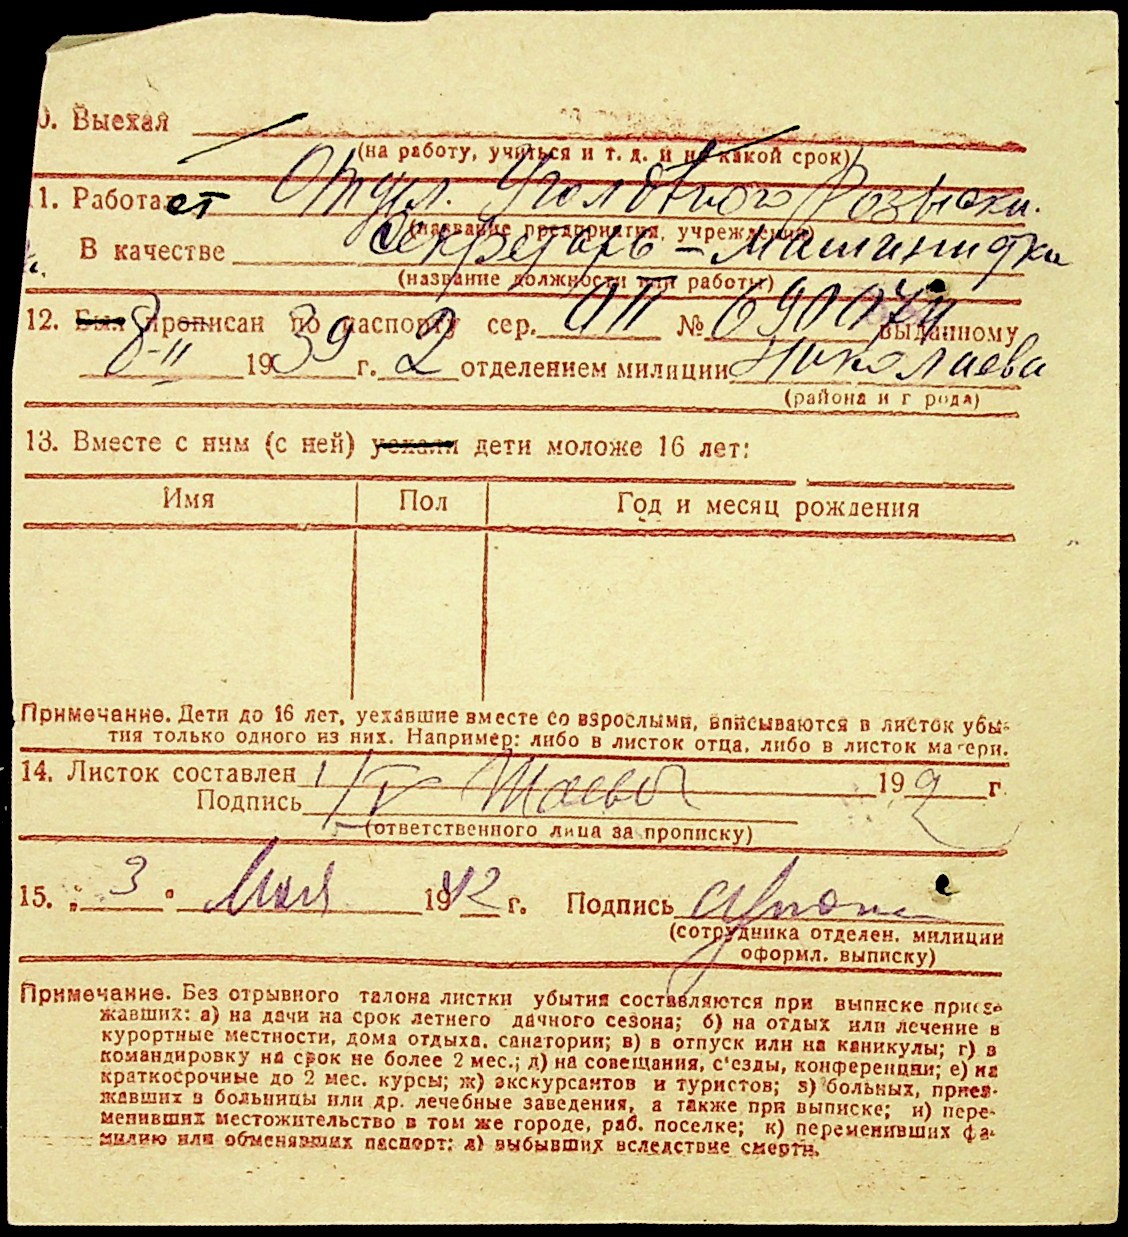 0. Выехал
(на работу, учиться и т. д. и на какой срок)
1. Работает Отдел Уголовного Розыска.
(название предприятия, учреждения)
В качестве Секретарь – машинистка
(название должности или работы)
12. Был прописан по паспорту сер. № выданному
8-II 1939 г. 2 отделением милиции Николаева
(района и г рода)
13. Вместе с ним (с ней) уехали дети моложе 16 лет:
Имя Пол Год и месяц рождения
Примечание. Дети до 16 лет, уехавшие вместе со взрослыми, вписываются в листок убы-
тия только одного из них. Например: либо в листок отца, либо в листок матери.
14. Листок составлен 19 г.
Подпись
(ответственного лица за прописку)
15. „ 3 " Мая 1942 г. Подпись
(сотрудника отделен. милиции
оформл. выписку)
Примечание. Без отрывного талона листки убытия составляются при выписке приез-
жавших: а) на дачи на срок летнего дачного сезона; б) на отдых или лечение в
курортные местности, дома отдыха, санатории; в) в отпуск или на каникулы; г) в
командировку на срок не более 2 мес.; д) на совещания, с'езды, конференции; е) на
краткосрочные до 2 мес. курсы; ж) экскурсантов и туристов; з) больных, приез-
жавших в больницы или др. лечебные заведения, а также при выписке; и) пере-
менивших местожительство в том же городе, раб. поселке; к) переменивших фа-
милию или обменявших паспорт; л) выбывших вследствие смерти.